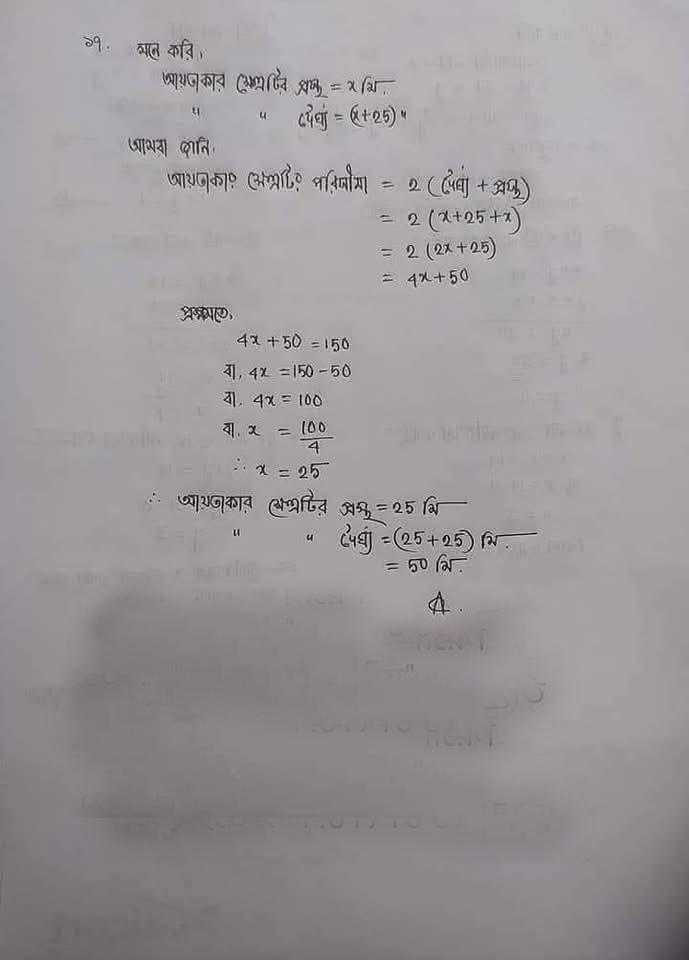 ১৭. মনে করি,
আয়তাকার ক্ষেত্রটির প্রস্থ = x মি.
" " দৈর্ঘ্য = (x+25) "
আমরা জানি,
আয়তাকার ক্ষেত্রটির পরিসীমা = 2 (দৈর্ঘ্য + প্রস্থ)
= 2 (x+25+x)
= 2 (2x+25)
= 4x+50
প্রশ্নমতে,
4x+50 = 150
বা, 4x = 150-50
বা, 4x = 100
বা, x = 100/4
∴ x = 25
∴ আয়তাকার ক্ষেত্রটির প্রস্থ = 25 মি
" " দৈর্ঘ্য = (25+25) মি.
= 50 মি.
A.